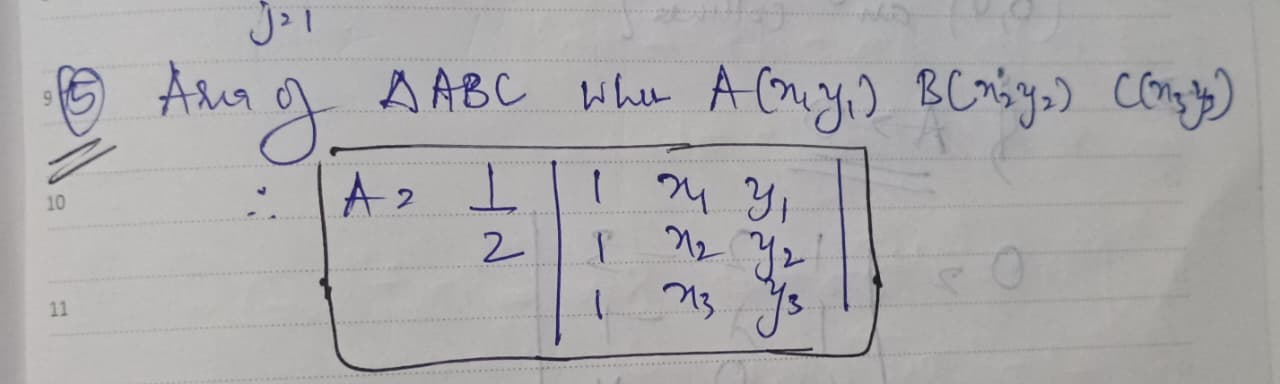 j=1
9 (5) Area of ΔABC when A(x₁y₁) B(x₂y₂) C(x₃y₃)
10 ∴ A = 1/2 | 1 x₁ y₁ |
| 1 x₂ y₂ |
11 | 1 x₃ y₃ |